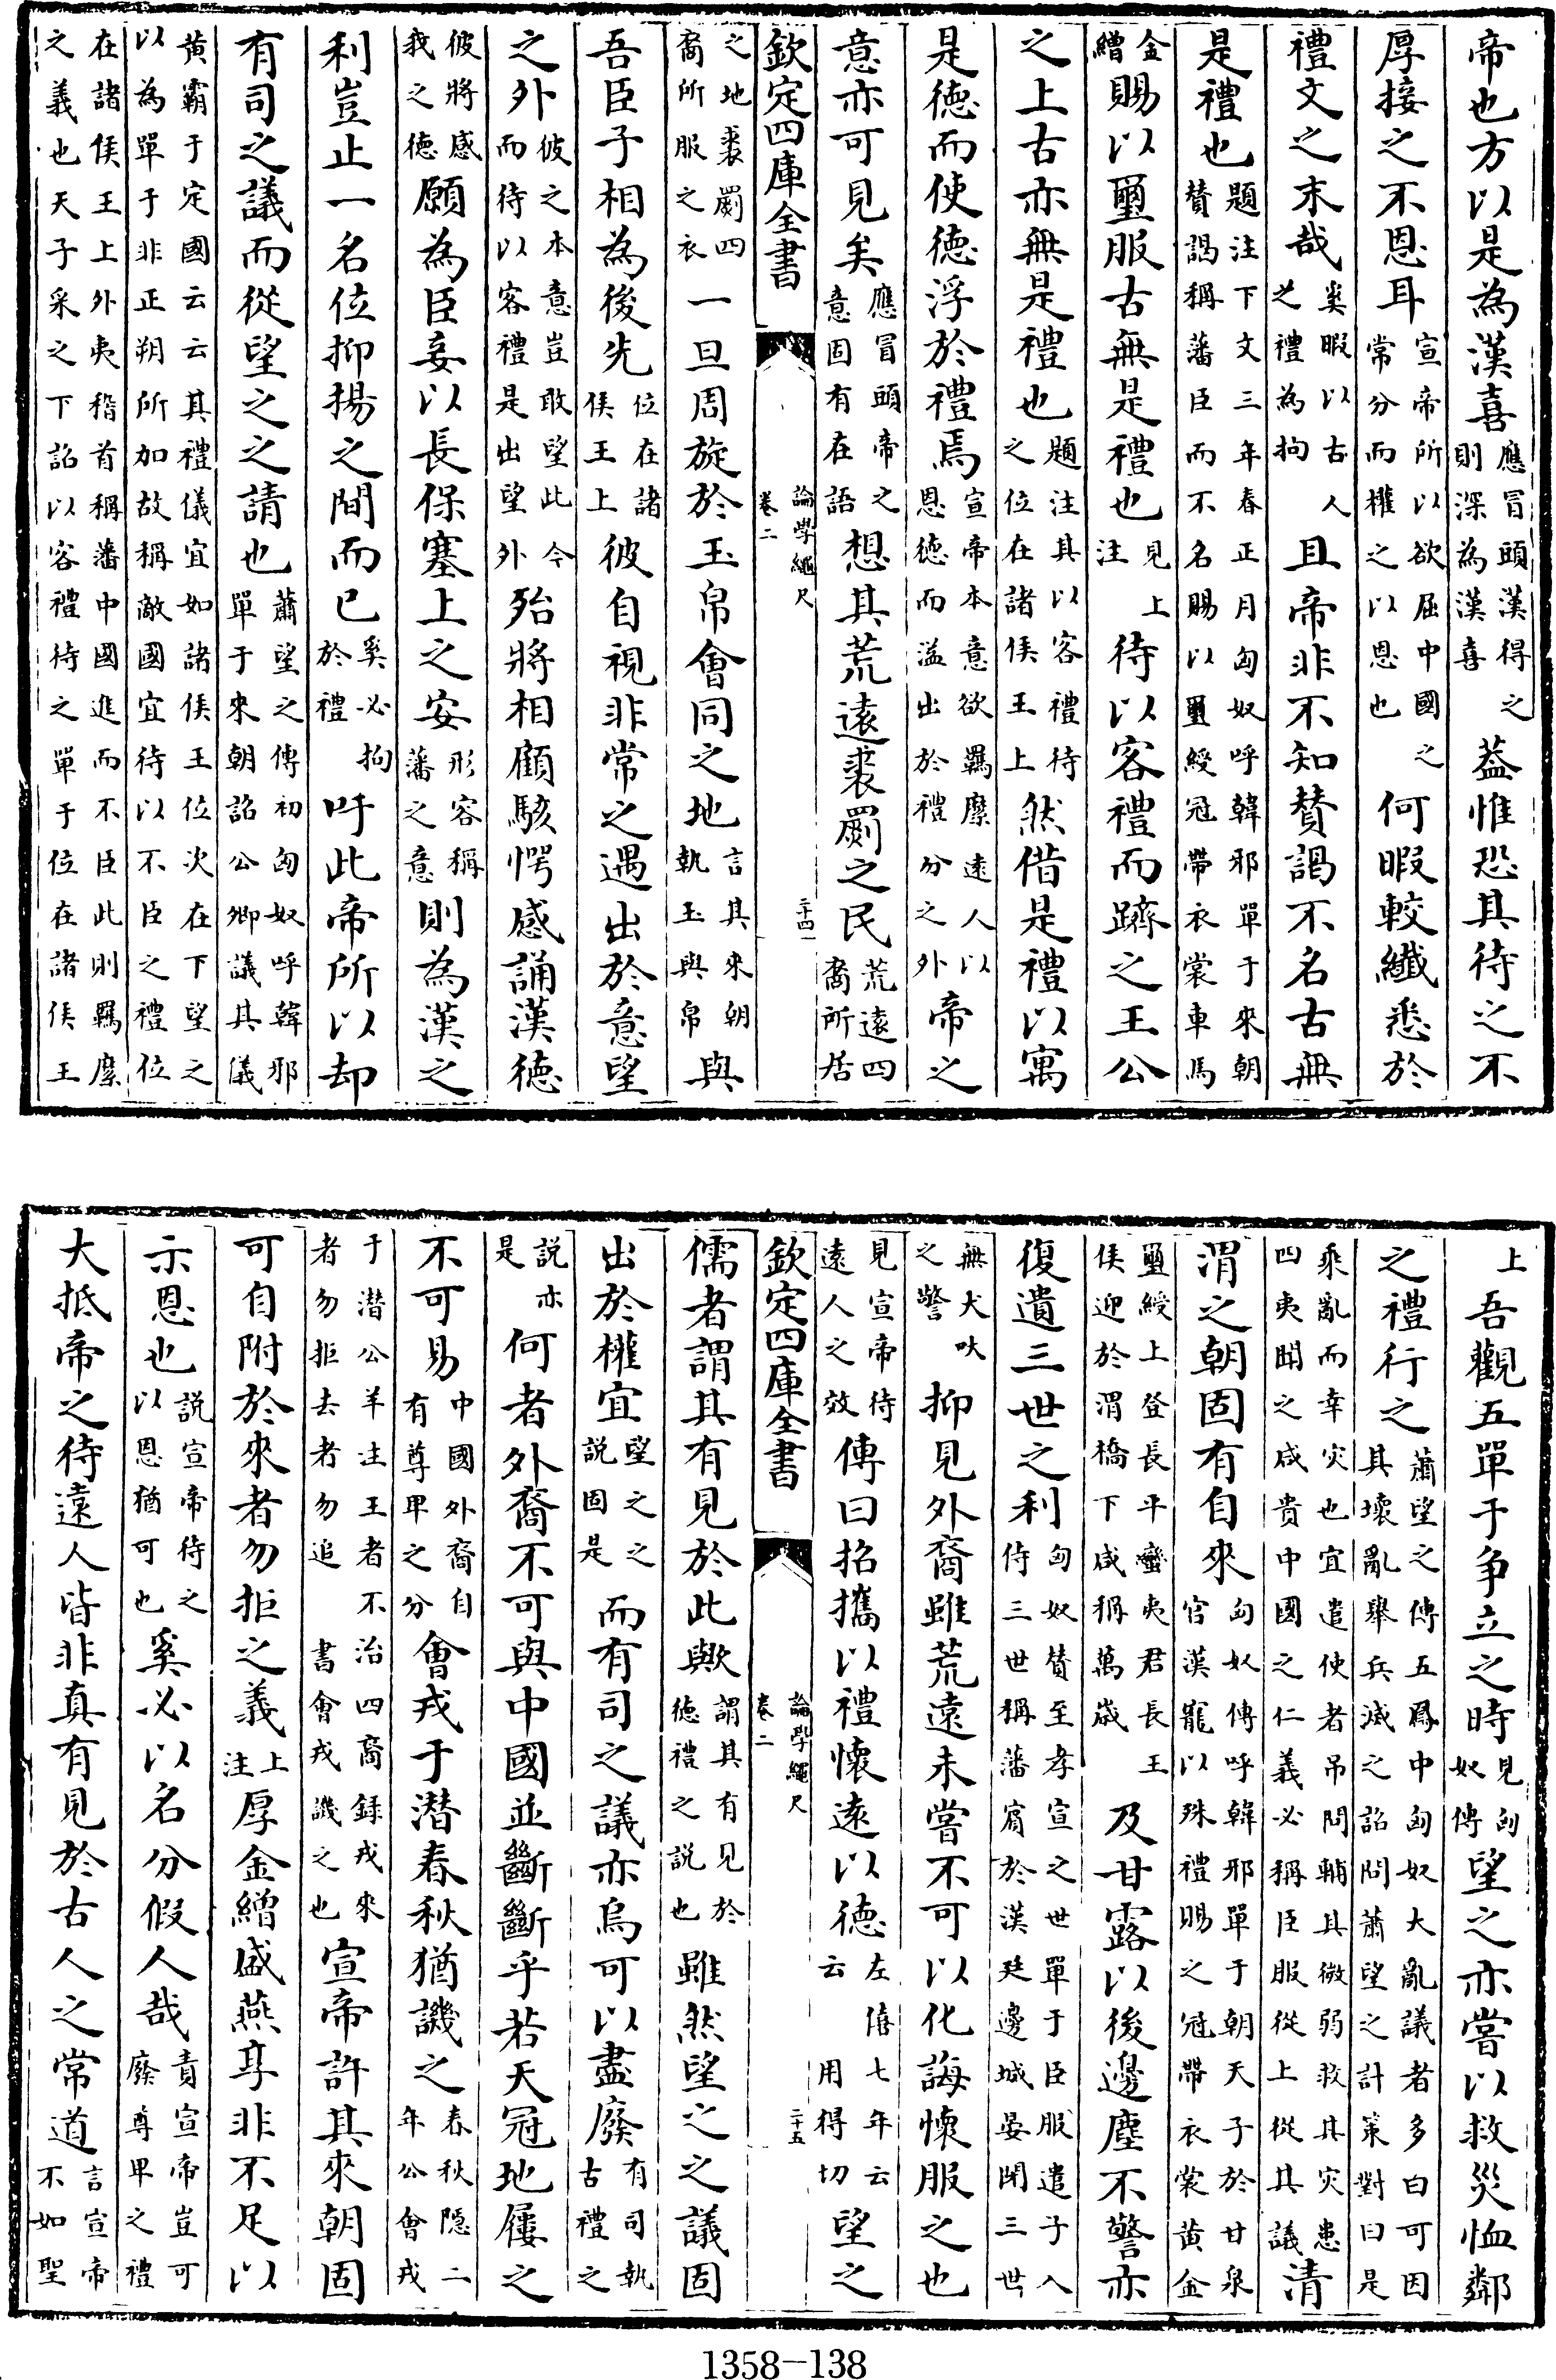 帝也方以是為漢喜應冒頭漢得之則深為漢喜葢惟恐其待之不
厚接之不恩耳宣帝所以欲屈中國之常分而權之以恩也何暇較纎悉於
禮文之末哉奚暇以古人之禮為拘且帝非不知贊謁不名古無
是禮也題注下文三年春正月匈奴呼韓邪單于來朝贊謁稱藩臣而不名賜以璽綬冠帶衣裳車馬
金繒賜以璽服古無是禮也見上注待以客禮而躋之王公
之上古亦無是禮也題注其以客禮待之位在諸侯王上然借是禮以寓
是徳而使徳浮於禮焉宣帝本意欲羈縻遠人以恩徳而溢出於禮分之外帝之
意亦可見矣應冒頭帝之意固有在語想其荒遠裘罽之民荒遠四裔所居
欽定四庫全書 論學繩尺卷二 二十四
之地裘罽四裔所服之衣一旦周旋於玉帛會同之地言其來朝執玉與帛與
吾臣子相為後先位在諸侯王上彼自視非常之遇出於意望
之外彼之本意豈敢望此今而待以客禮是出望外殆將相顧駭愕感誦漢徳
彼將感我之徳願為臣妾以長保塞上之安形容稱藩之意則為漢之
利豈止一名位抑揚之間而已奚必拘於禮吁此帝所以却
有司之議而從望之之請也蕭望之傳初匈奴呼韓邪單于來朝詔公卿議其儀
黄霸于定國云云其禮儀宜如諸侯王位次在下望之以為單于非正朔所加故稱敵國宜待以不臣之禮位
在諸侯王上外夷稽首稱藩中國進而不臣此則羈縻之義也天子采之下詔以客禮待之單于位在諸侯王
上吾觀五單于爭立之時見匈奴傳望之亦嘗以救災恤鄰
之禮行之蕭望之傳五鳳中匈奴大亂議者多曰可因其壞亂舉兵滅之詔問蕭望之計策對曰是
乘亂而幸災也宜遣使者弔問輔其微弱救其災患四夷聞之咸貴中國之仁義必稱臣服從上從其議清
渭之朝固有自來匈奴傳呼韓邪單于朝天子於甘泉宫漢寵以殊禮賜之冠帶衣裳黄金
璽綬上登長平蠻夷君長王侯迎於渭橋下咸稱萬嵗及甘露以後邊塵不警亦
復遺三世之利匈奴贊至孝宣之世單于臣服遣子入侍三世稱藩賓於漢廷邊城晏閉三世
無犬吠之警抑見外裔雖荒遠未嘗不可以化誨懷服之也
見宣帝待遠人之效傳曰招攜以禮懷遠以徳左僖七年云云用得切望之
欽定四庫全書 論學繩尺卷二 二十五
儒者謂其有見於此歟謂其有見於徳禮之説也雖然望之之議固
出於權宜望之之説固是而有司之議亦烏可以盡廢有司執古禮之
説亦是何者外裔不可與中國並斷斷乎若天冠地屨之
不可易中國外裔自有尊卑之分會戎于潛春秋猶譏之春秋隠二年公會戎
于潛公羊注王者不治四裔録戎來者勿拒去者勿追書會戎譏之也宣帝許其來朝固
可自附於來者勿拒之義上注厚金繒盛燕享非不足以
示恩也説宣帝待之以恩猶可也奚必以名分假人哉責宣帝豈可廢尊卑之禮
大抵帝之待遠人皆非真有見於古人之常道言宣帝不如聖
1358—138